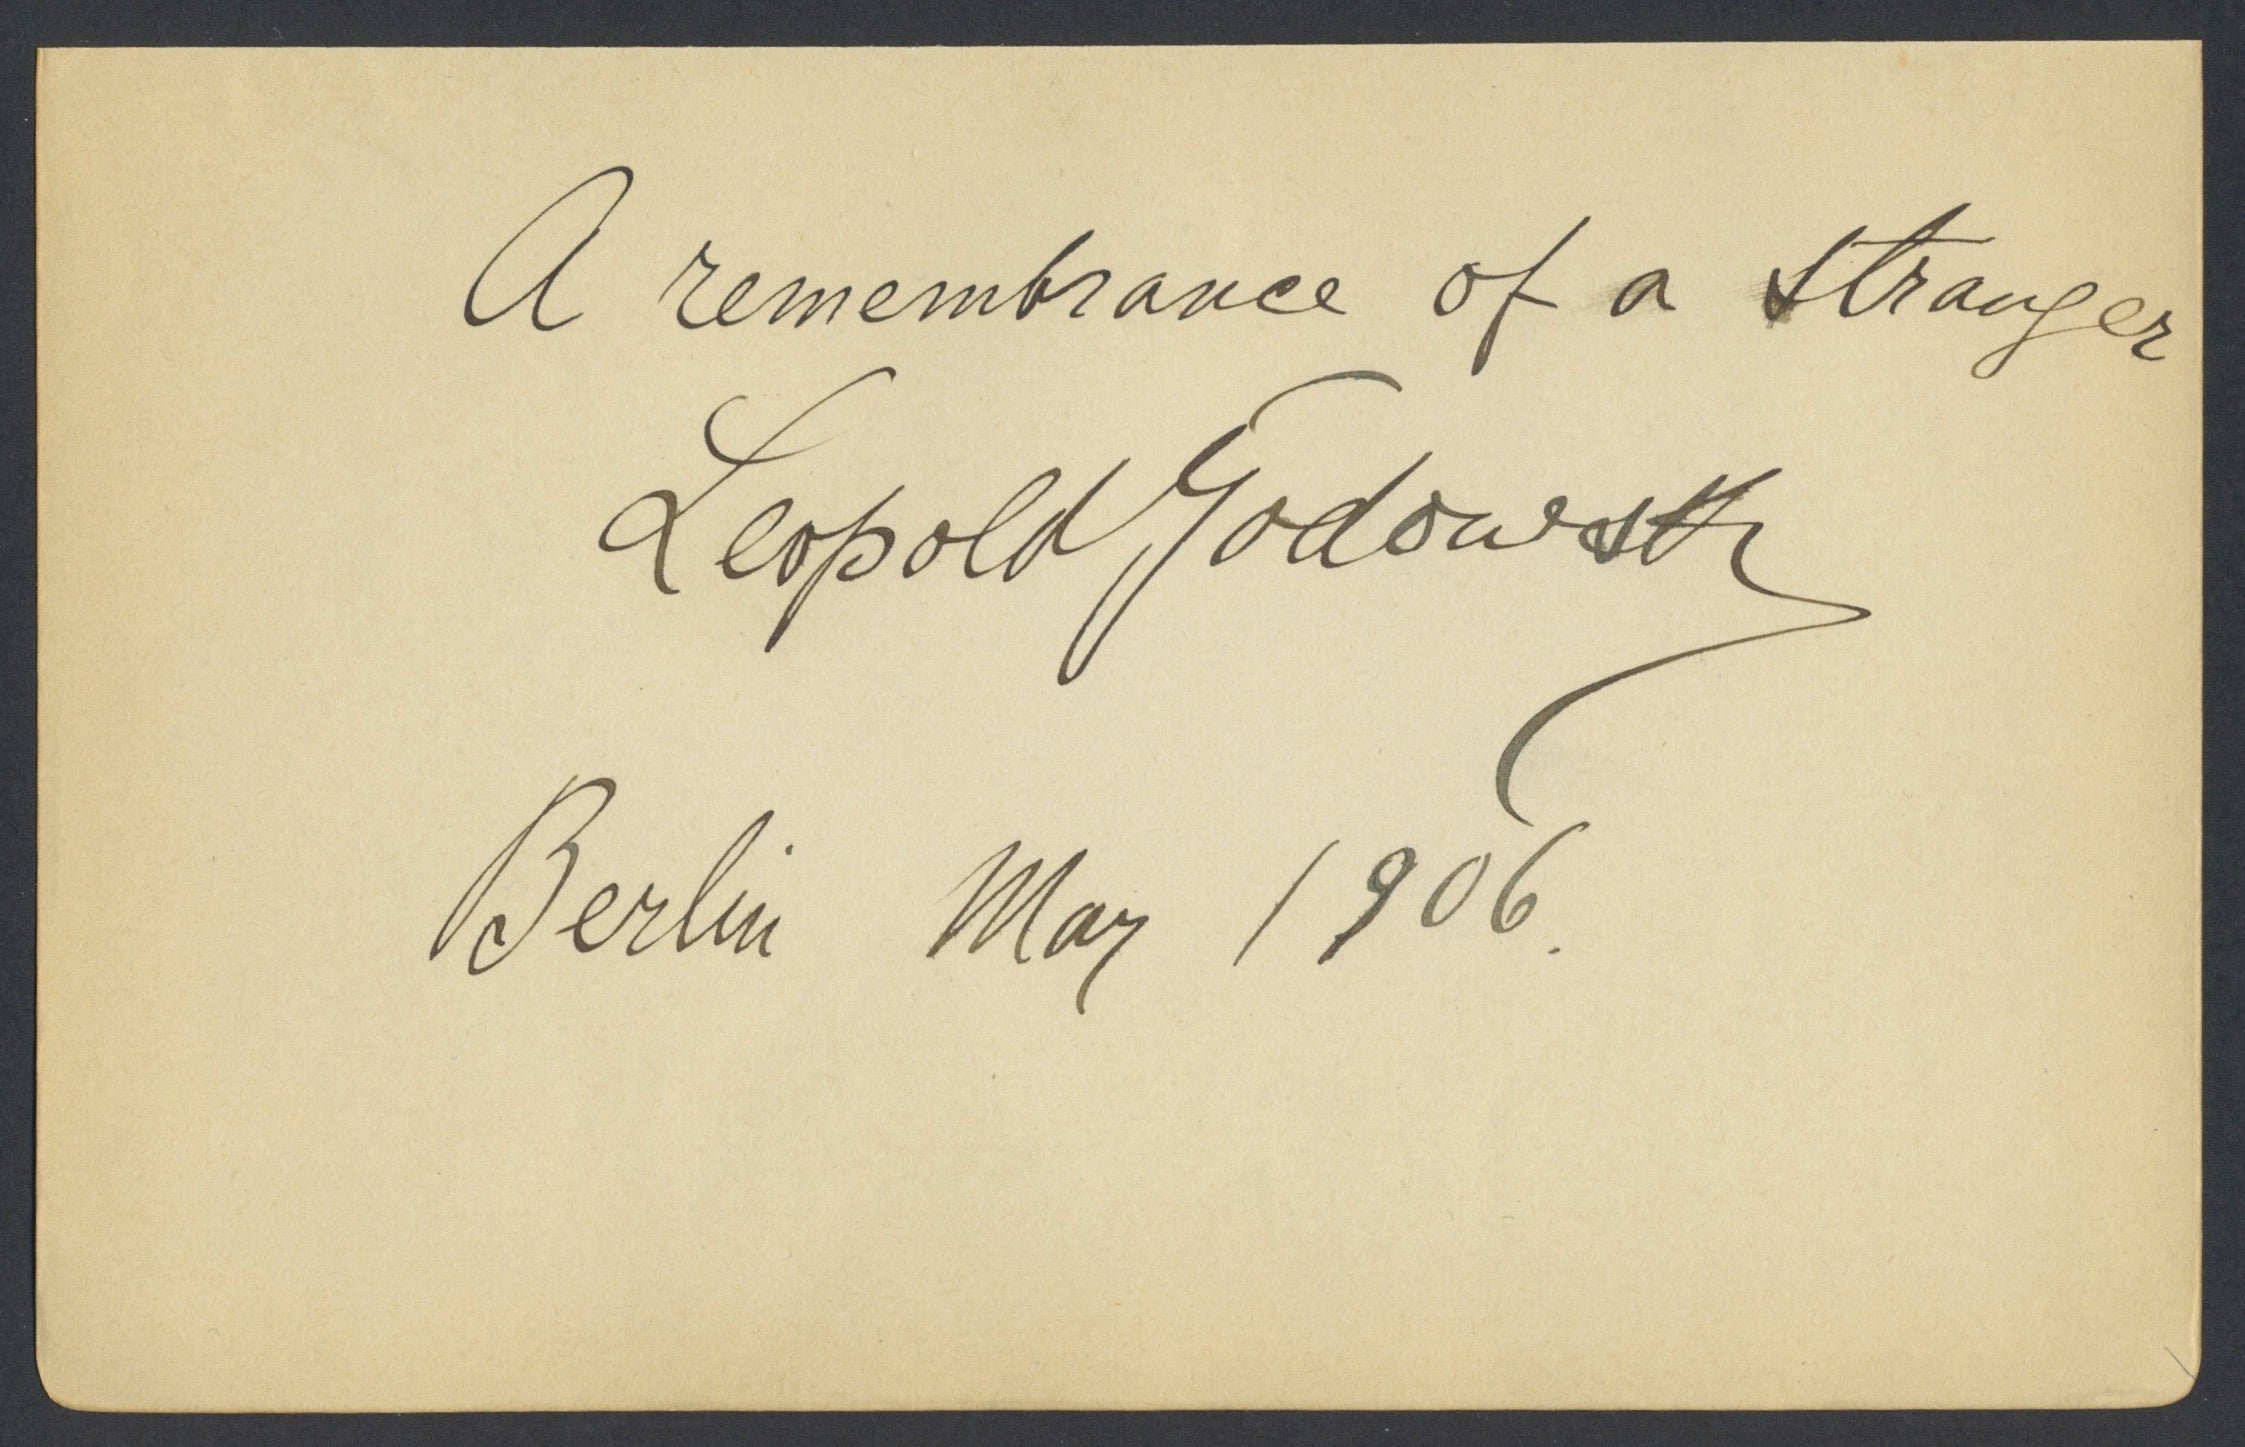 A remembrance of a stranger
Leopold Godowsky
Berlin May 1906.